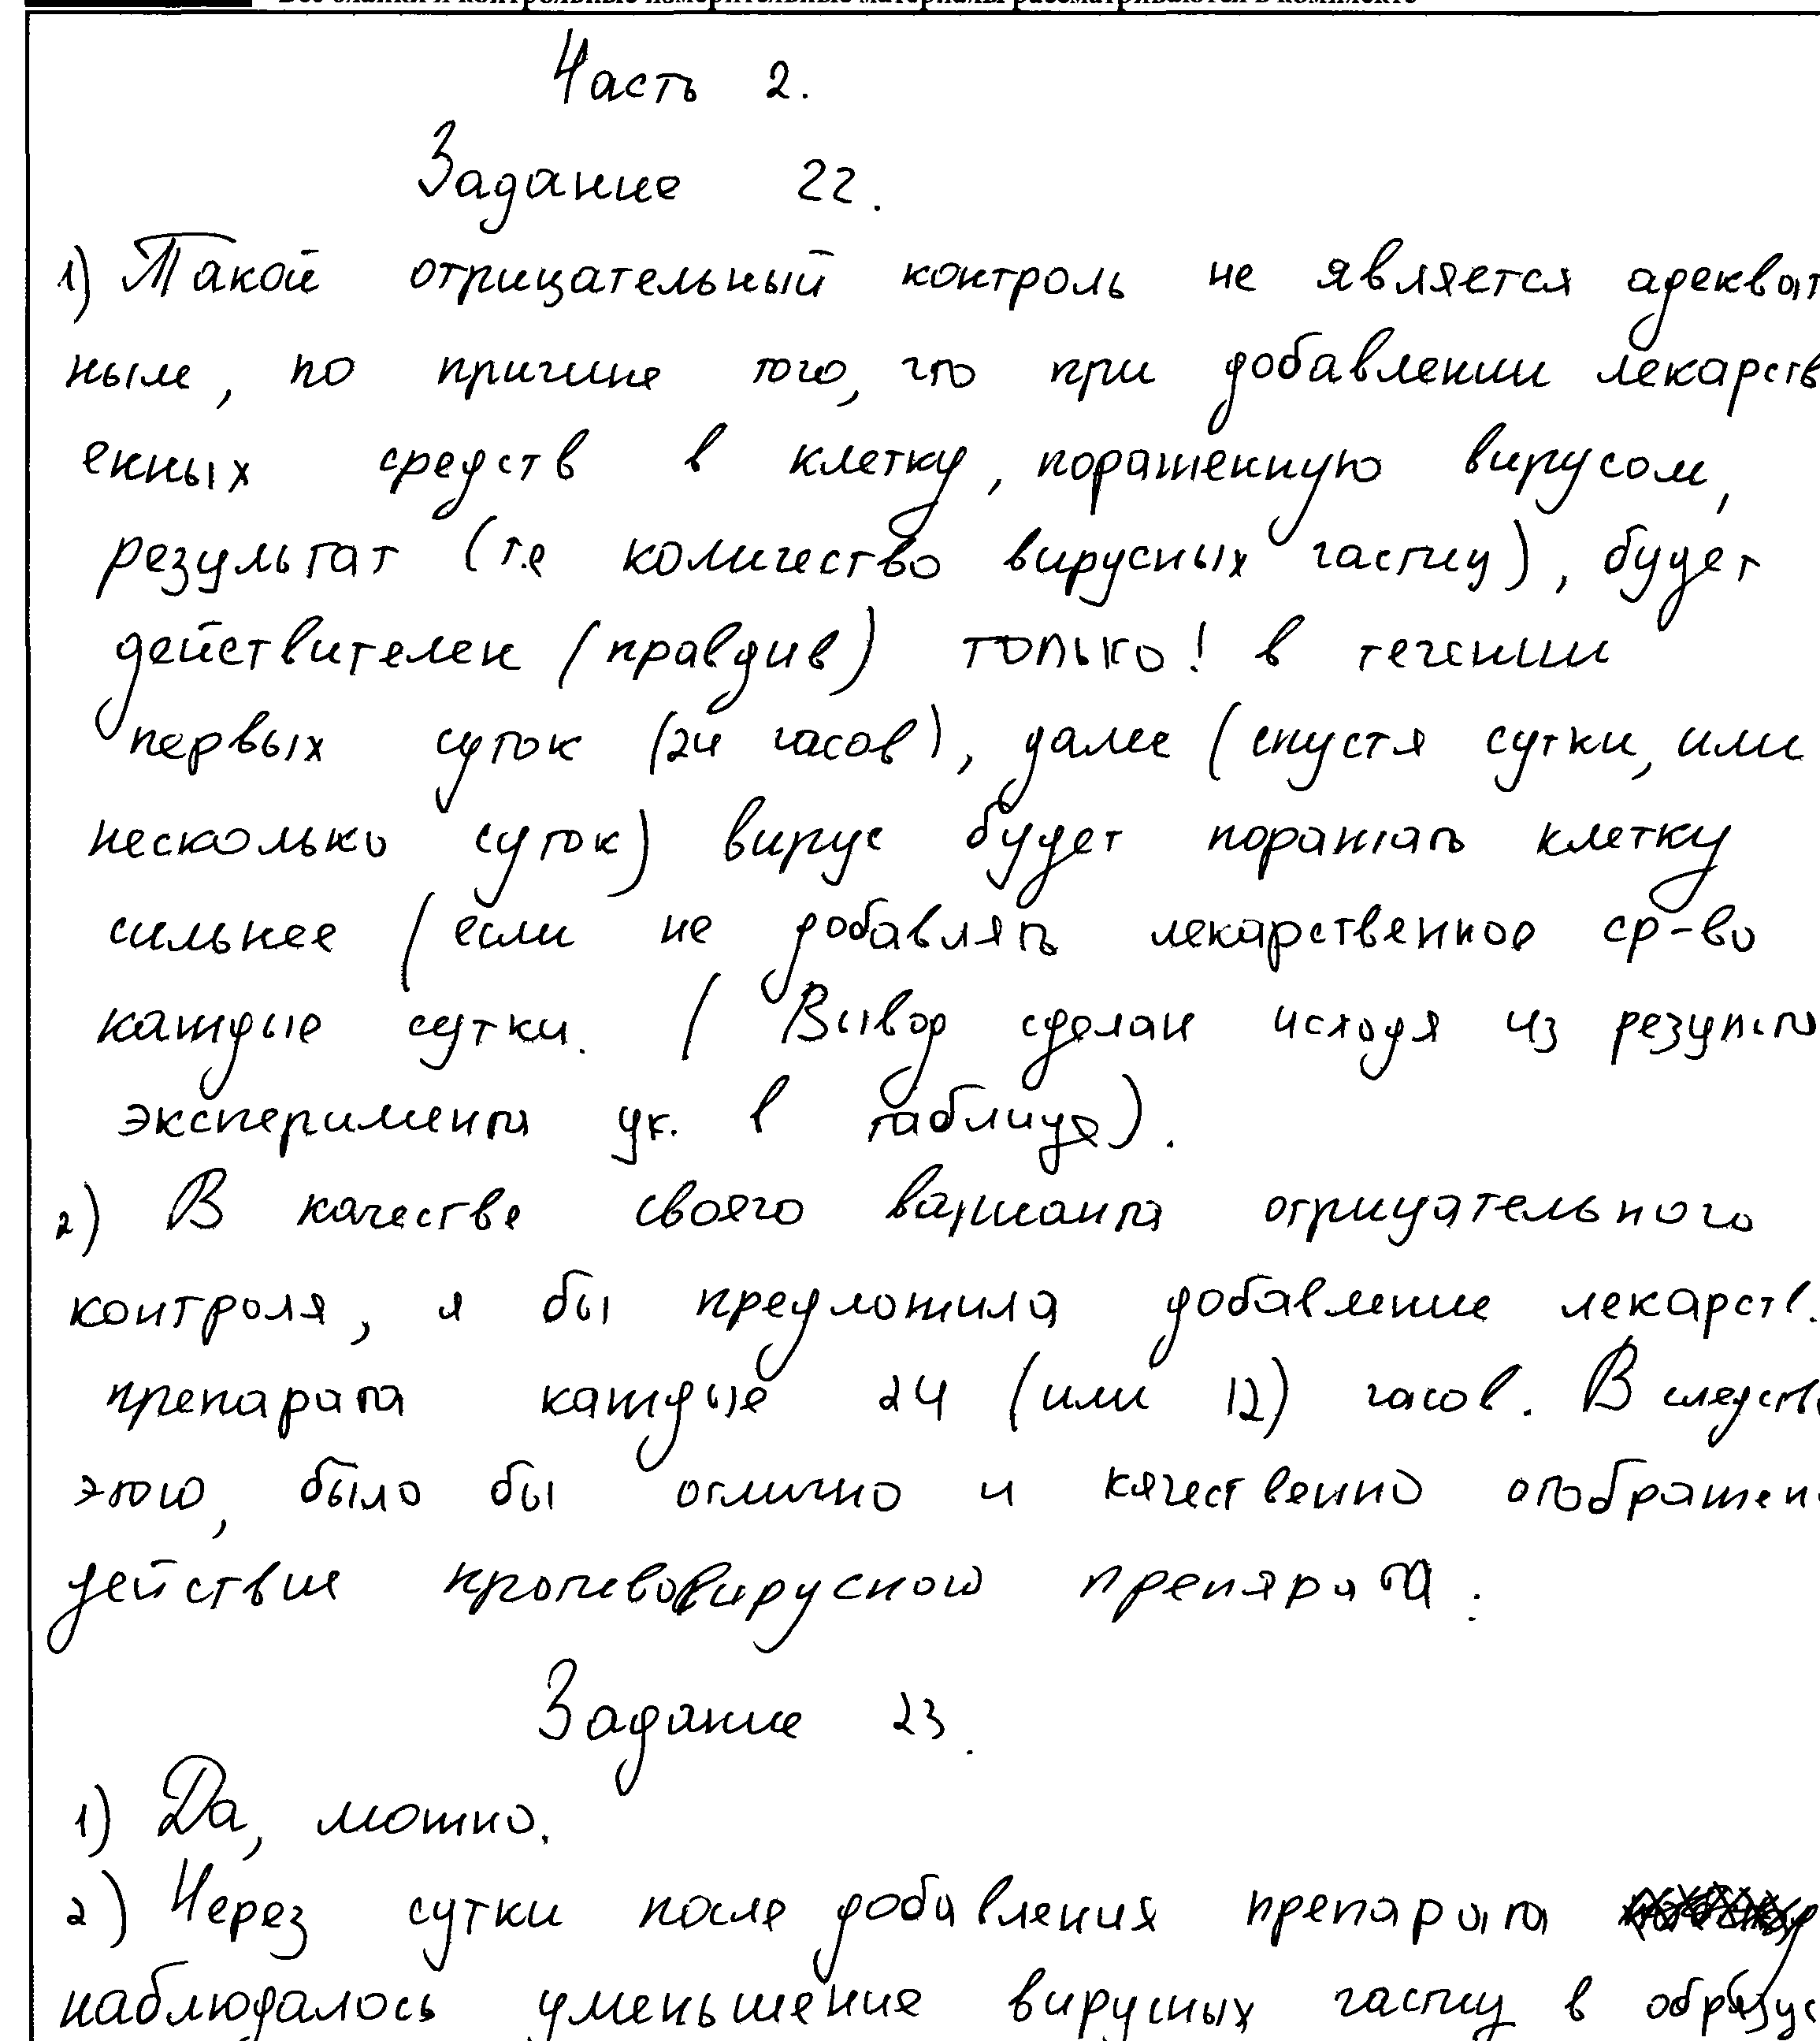 Все бланки и контрольные измерительные материалы рассматриваются в комплекте
Часть 2.
Задание 22.
1) Такой отрицательный контроль не является адекват
ным, по причине того, что при добавлении лекарств
енных средств в клетку, пораженную вирусом,
результат (т.е количество вирусных частиц), будет
действителен (правдив) только! в течении
первых суток (24 часов), далее (спустя сутки, или
несколько суток) вирус будет поражать клетку
сильнее (если не добавлять лекарственное ср-во
каждые сутки. (Вывод сделан исходя из результа
эксперимента ук. в таблице).
2) В качестве своего варианта отрицательного
контроля, я бы предложила добавление лекарств.
препарата каждые 24 (или 12) часов. В следств
этого, было бы отлично и качественно отображен
действие противовирусного препарата.
Задание 23.
1) Да, можно.
2) Через сутки после добавления препарата
наблюдалось уменьшение вирусных частиц в образц